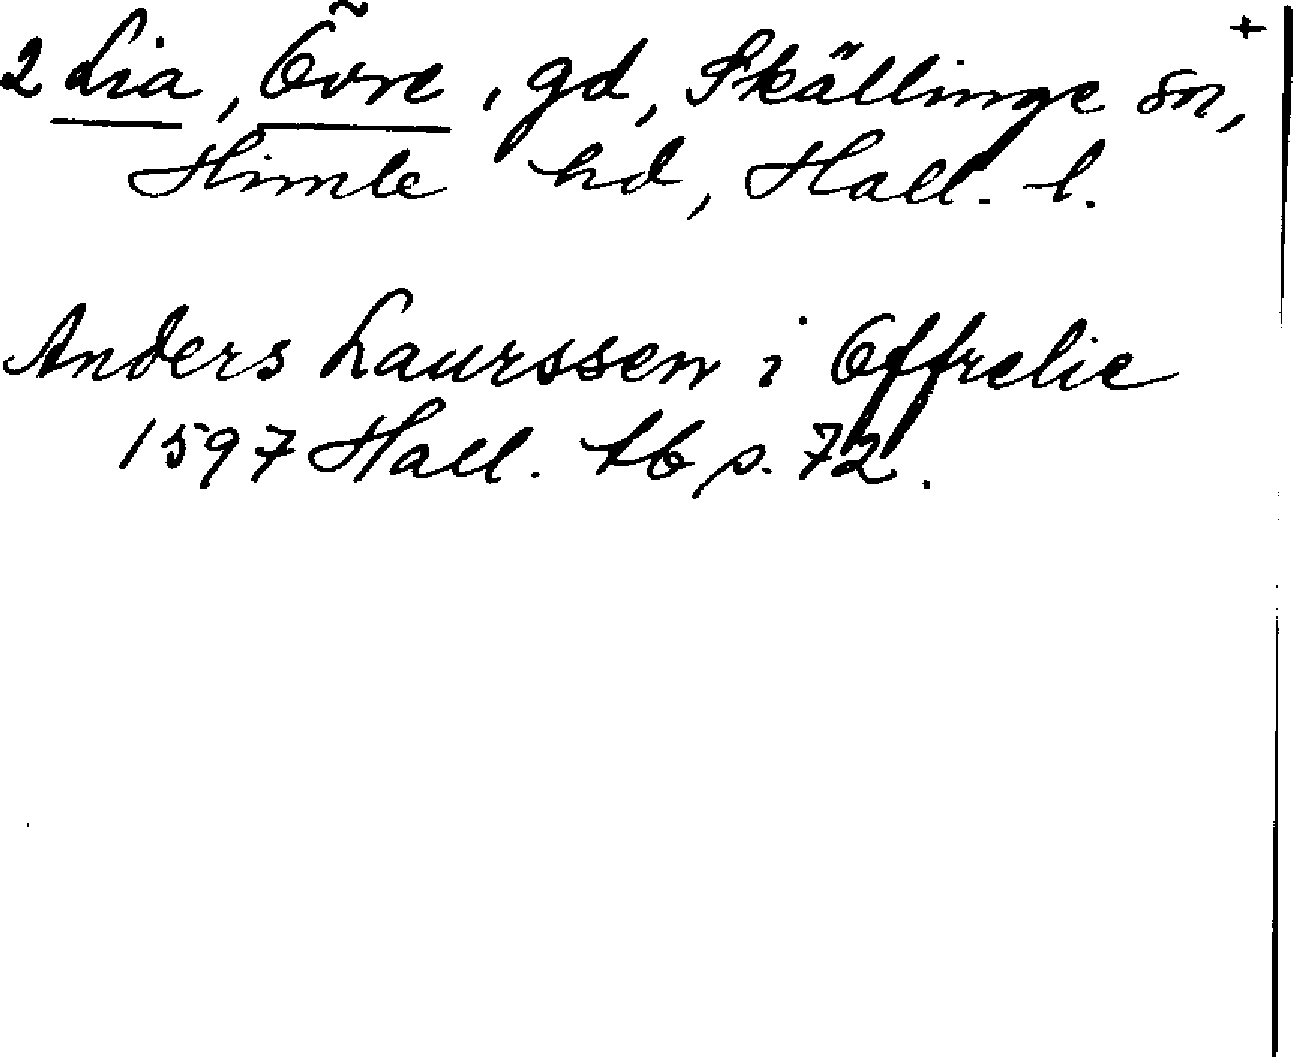 2 Lia, Övre, gd, Skällinge sn, +
Himle hd, Hall. l.
Anders Laurssen i Offrelie
1597 Hall. tb s. 72.